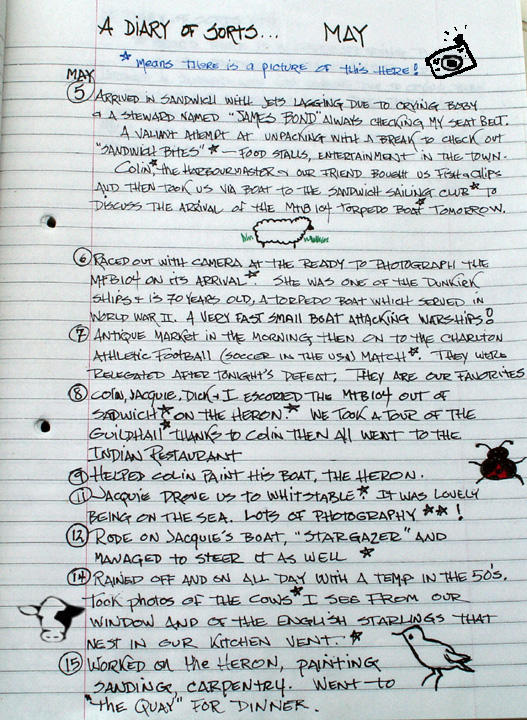 A DIARY OF SORTS... MAY
* MEANS THERE IS A PICTURE OF THIS HERE!
MAY
5 ARRIVED IN SANDWICH WITH JETS LAGGING DUE TO CRYING BABY
& A STEWARD NAMED "JAMES BOND" ALWAYS CHECKING MY SEAT BELT.
A VALIANT ATTEMPT AT UNPACKING WITH A BREAK TO CHECK OUT
"SANDWICH BITES"* — FOOD STALLS, ENTERTAINMENT IN THE TOWN.
COLIN,* THE HARBOURMASTER & OUR FRIEND BOUGHT US FISH & CHIPS
AND THEN TOOK US VIA BOAT TO THE SANDWICH SAILING CLUB* TO
DISCUSS THE ARRIVAL OF THE MTB 104 TORPEDO BOAT* TOMORROW.
6 RACED OUT WITH CAMERA AT THE READY TO PHOTOGRAPH THE
MTB104 ON ITS ARRIVAL*. SHE WAS ONE OF THE DUNKIRK
SHIPS & IS 70 YEARS OLD, A TORPEDO BOAT WHICH SERVED IN
WORLD WAR II. A VERY FAST SMALL BOAT ATTACKING WARSHIPS!
7 ANTIQUE MARKET IN THE MORNING THEN ON TO THE CHARLTON
ATHLETIC FOOTBALL (SOCCER IN THE USA) MATCH*. THEY WERE
RELEGATED AFTER TONIGHT'S DEFEAT. THEY ARE OUR FAVORITES
8 COLIN, JACQUIE, DICK & I ESCORTED THE MTB104 OUT OF
SADWICH* ON THE HERON.* WE TOOK A TOUR OF THE
GUILDHALL* THANKS TO COLIN THEN ALL WENT TO THE
INDIAN RESTAURANT
9 HELPED COLIN PAINT HIS BOAT, THE HERON.
11 JACQUIE DROVE US TO WHITSTABLE* IT WAS LOVELY
BEING ON THE SEA. LOTS OF PHOTOGRAPHY **!
12 RODE ON JACQUIE'S BOAT, "STARGAZER" AND
MANAGED TO STEER IT AS WELL *
14 RAINED OFF AND ON ALL DAY WITH A TEMP IN THE 50'S.
TOOK PHOTOS OF THE COWS* I SEE FROM OUR
WINDOW AND OF THE ENGLISH STARLINGS THAT
NEST IN OUR KITCHEN VENT.*
15 WORKED ON THE HERON, PAINTING
SANDING, CARPENTRY. WENT TO
"THE QUAY" FOR DINNER.